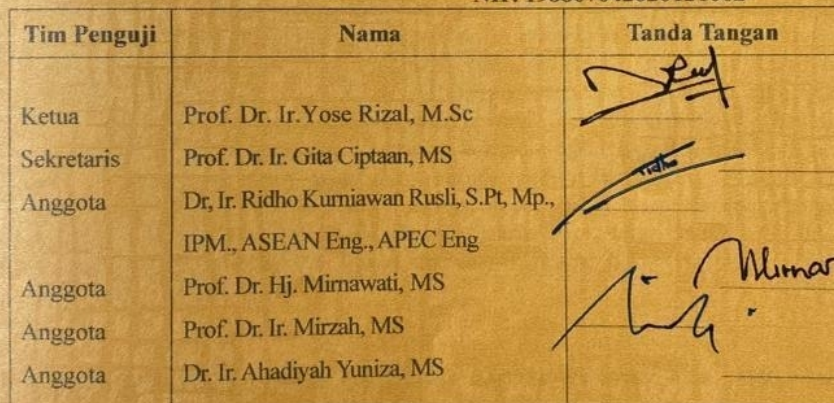 Tim Penguji Nama Tanda Tangan
Ketua Prof. Dr. Ir.Yose Rizal, M.Sc
Sekretaris Prof. Dr. Ir. Gita Ciptaan, MS
Anggota Dr, Ir. Ridho Kurniawan Rusli, S.Pt, Mp.,
IPM., ASEAN Eng., APEC Eng
Anggota Prof. Dr. Hj. Mirnawati, MS
Anggota Prof. Dr. Ir. Mirzah, MS
Anggota Dr. Ir. Ahadiyah Yuniza, MS